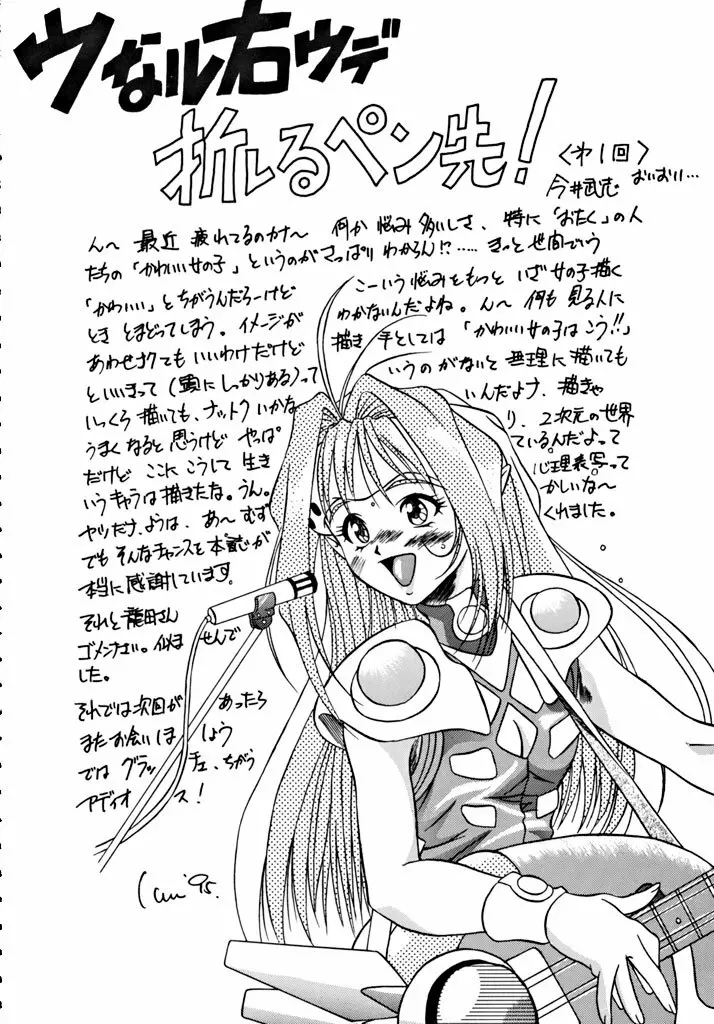 ウなル右ウデ
折しるペン先!
〈オ1回〉
今井武志 おいおい…
ん〜 最近 疲れてるのカナ〜 何か 悩み 多いしさ、特に「おたく」の人
たちの「かわいい女の子」というのがさっぱり わからん!?…… きっと 世間でいう
「かわいい」とちがうんだろーけど こーいう悩みをもっと いざ 女の子 描く
とき とまどってしまう。イメージが わかないんだよね。ん〜 何も 見る人に
あわせナクても いいわけだけど 描き 手としては「かわいい女の子は こう!!」
といいきって(頭に しっかりある)って いうの がないと 無理に 描いても
いっくら 描いても、ナットク いかな いんだよナ、描きゃ
うまく なると 思うけど やっぱ り、2次元の世界
だけど ここに こうして 生き ているんだよって
いうキャラは 描きたな。うん。 心理表写って
ヤツだナ、ようは、あ〜 むず かしいな〜
でも そんなチャンスを 本誌が くれました。
本当に 感謝しています。
それと 龍田さん
ゴメンナさい。似ま せんで
した。
それでは 次回が あったら
また お会い しま しょう
では グラッ チェ、ちがう
アディオ ス!
'95.